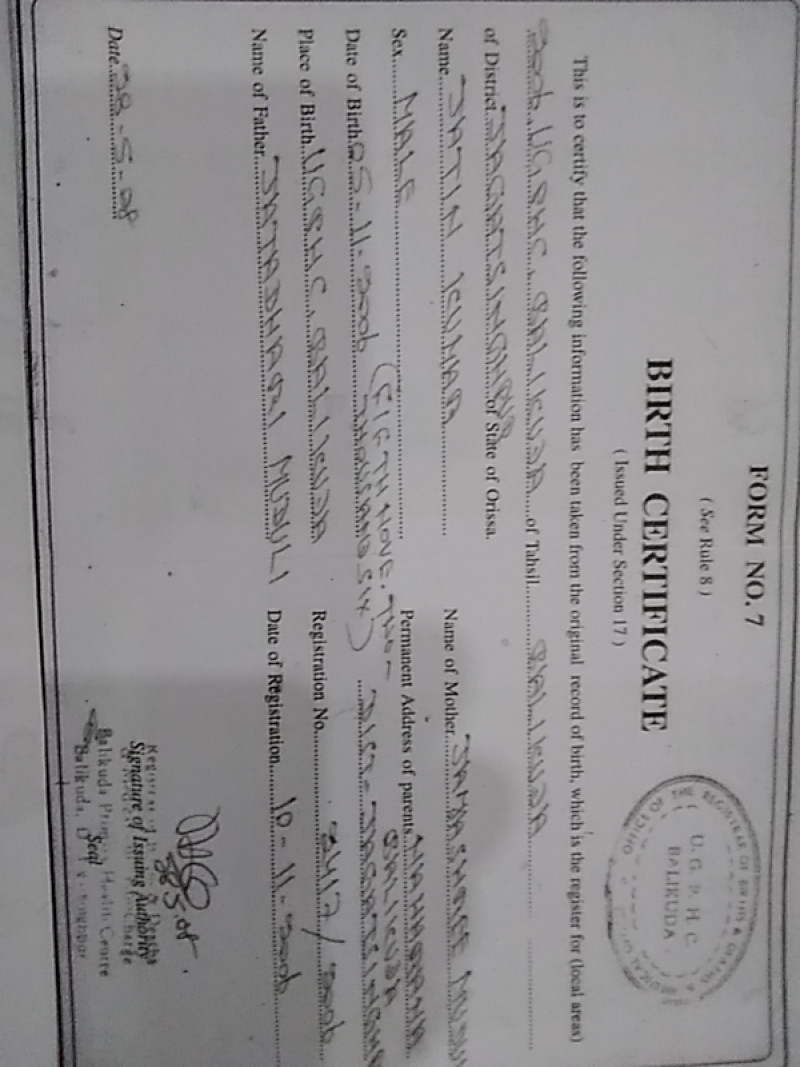 FORM NO. 7
( See Rule 8 )
BIRTH CERTIFICATE
( Issued Under Section 17 )
OFFICE OF THE REGISTRAR OF BIRTHS & DEATHS
U. G. P. H. C.
BALIKUDA
This is to certify that the following information has been taken from the original record of birth, which is the register for (local areas)
2006. UGPHC. BALIKUDA of Tahsil BALIKUDA
of District JAGATSINGHPUR of State of Orissa.
Name JATIN KUMAR
Name of Mother
Sex MALE
Permanent Address of parents
BALIKUDA
Date of Birth 05-11-2006 (FIFTH NOVE. TWO-
THOUSAND SIX)
DIST-
Place of Birth UGPHC. BALIKUDA
Registration No. 2417/2006
Name of Father JATADHARI MUDULI
Date of Registration 10-11-2006
Date 28-5-08
28.5.08
Signature of Issuing Authority
Seal
Balikuda